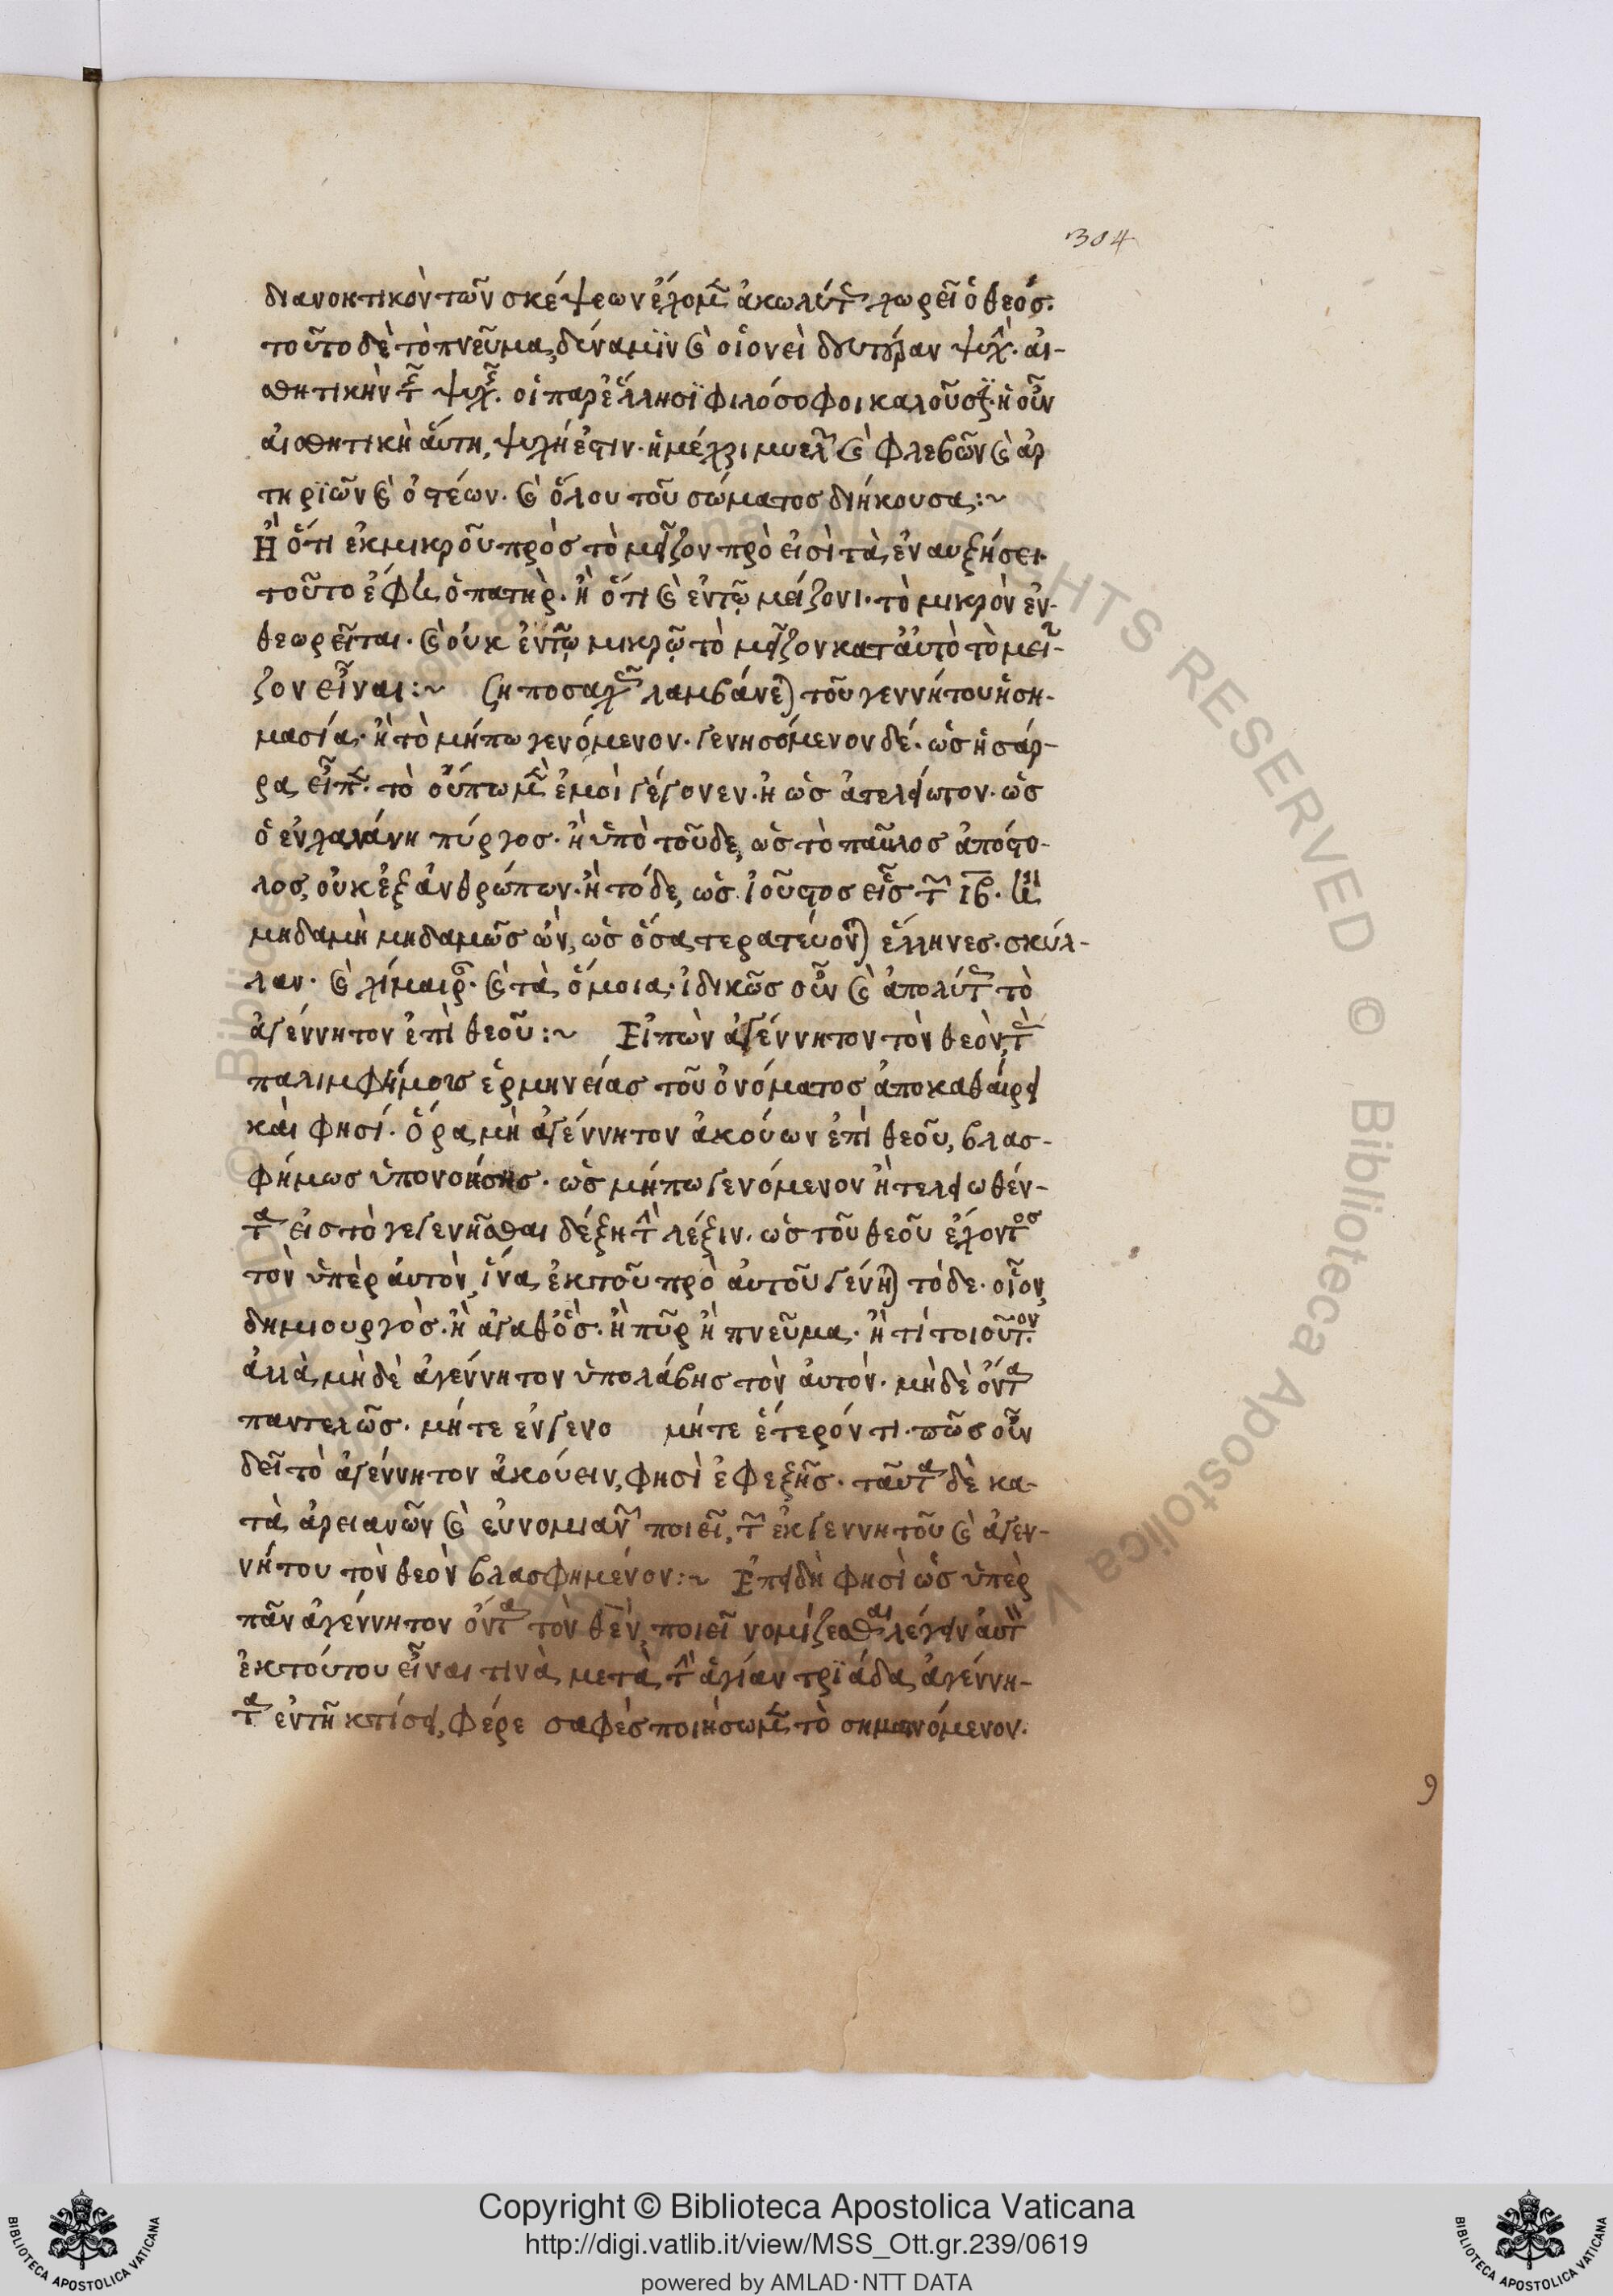 304
διανοκτικὸν τῶν σκέψεων ἔχομεν ἀκωλύτως χωρεῖ ὁ θεός.
τοῦτο δὲ τὸ πνεῦμα, δύναμϊν καὶ οἱονεὶ δευτέραν ψυχὴν. αἰ-
σθητικὴν τῆς ψυχῆς. οἱ παρ ἕλλησϊ φιλόσοφοι καλοῦσϊν. ἡ οὖν
αἰσθητικὴ ἅυτη, ψυχή ἐστιν. ἡ μέχρι μυελῶν καὶ φλεβῶν καὶ ἀρ
τηρϊῶν καὶ ὀστέων. καὶ ὅλου τοῦ σώματος διήκουσα:~
Ἢ ὅτι ἐκ μικροῦ πρὸς τὸ μεῖζον πρὸεισὶ τὰ ἐν αυξήσει.
τοῦτο ἔφη ὁ πατὴρ. ἢ ὅτι καὶ ἐν τῷ μείζονι. τὸ μικρὸν ἐν-
θεωρεῖται. καὶ οὐκ ἐν τῷ μικρῷ τὸ μεῖζον κατ ἀυτὸ τὸ μεῖ-
ζον εἶναι:~ ζη ποσαχῶς λαμβάνεται τοῦ γεννήτου ἡ ση-
μασία. ἢ τὸ μήπω γενόμενον. γενησόμενον δέ. ὡς ἡ σάρ-
ρα εἶπε. τὸ οὔπω μὲν ἐμοὶ γέγονεν. ἢ ὡς ἀτελείωτον. ὡς
ὁ ἐν χαλάνη πύργος. ἢ ὑπὸ τοῦδε, ὡς τὸ παῦλος ἀπόστο-
λος, οὐκ ἐξ ἀνθρώπων. ἢ τόδε, ὡς ἰοῦστος εἷς τῶν ιβ.
μηδαμὴ μηδαμῶς ὢν, ὡς ὅσα τερατεύονται ἕλληνες. σκύλ-
λαν. καὶ χίμαιραν. καὶ τὰ ὅμοια. ἰδικῶς οὖν καὶ ἀπολύτως τὸ
ἀγέννητον ἐπὶ θεοῦ:~ Εἰπὼν ἀγέννητον τὸν θεὸν, τὰς
παλιμφήμους ἑρμηνείας τοῦ ὀνόματος ἀποκαθαίρει
καὶ φησί. ὅρα μὴ ἀγέννητον ἀκούων ἐπὶ θεοῦ, βλασ-
φήμως ὑπονοήσης. ὡς μήπω γενόμενον ἢ τελειωθέν-
τα εἰς τὸ γεγενῆσθαι δέξη τὴν λέξιν. ὡς τοῦ θεοῦ ἔχοντος
τὸν ὑπὲρ ἀυτὸν, ἵνα ἐκ τοῦ πρὸ ἀυτοῦ γένηται τόδε. οἷον,
δημιουργὸς. ἢ ἀγαθὸς. ἢ πῦρ ἢ πνεῦμα. ἢ τί τοιοῦτον.
ἀλλὰ μὴδὲ ἀγέννητον ὑπολάβης τὸν ἀυτὸν. μὴδὲ ὄντα
παντελῶς. μήτε ἐν γενο μήτε ἕτερόν τι. πῶς οὖν
δεῖ τὸ ἀγέννητον ἀκούειν, φησὶ ἐφεξῆς. ταῦτα δὲ κα-
τὰ ἀρειανῶν καὶ εὐνομιανῶν ποιεῖ, τῶν ἐκ γεννητοῦ καὶ ἀγεν-
νήτου τὸν θεὸν βλασφημένον:~ Ἐπειδὴ φησὶ ὡς ὑπὲρ
πᾶν ἀγέννητον ὄντα τὸν θεν, ποιεῖ νομίζεσθαι λέγειν ἀυτὸν
ἐκ τούτου εἶναι τινὰ μετὰ τὴν ἁγίαν τρϊάδα ἀγέννη-
τα ἐν τῆ κτίσει, φέρε σαφὲς ποιήσωμεν τὸ σημαινόμενον.
9
© Biblioteca Apostolica Vaticana ALL RIGHTS RESERVED © Biblioteca Apostolica V
Copyright © Biblioteca Apostolica Vaticana
http://digi.vatlib.it/view/MSS_Ott.gr.239/0619
powered by AMLAD·NTT DATA
BIBLIOTECA APOSTOLICA VATICANA
BIBLIOTECA APOSTOLICA VATICANA